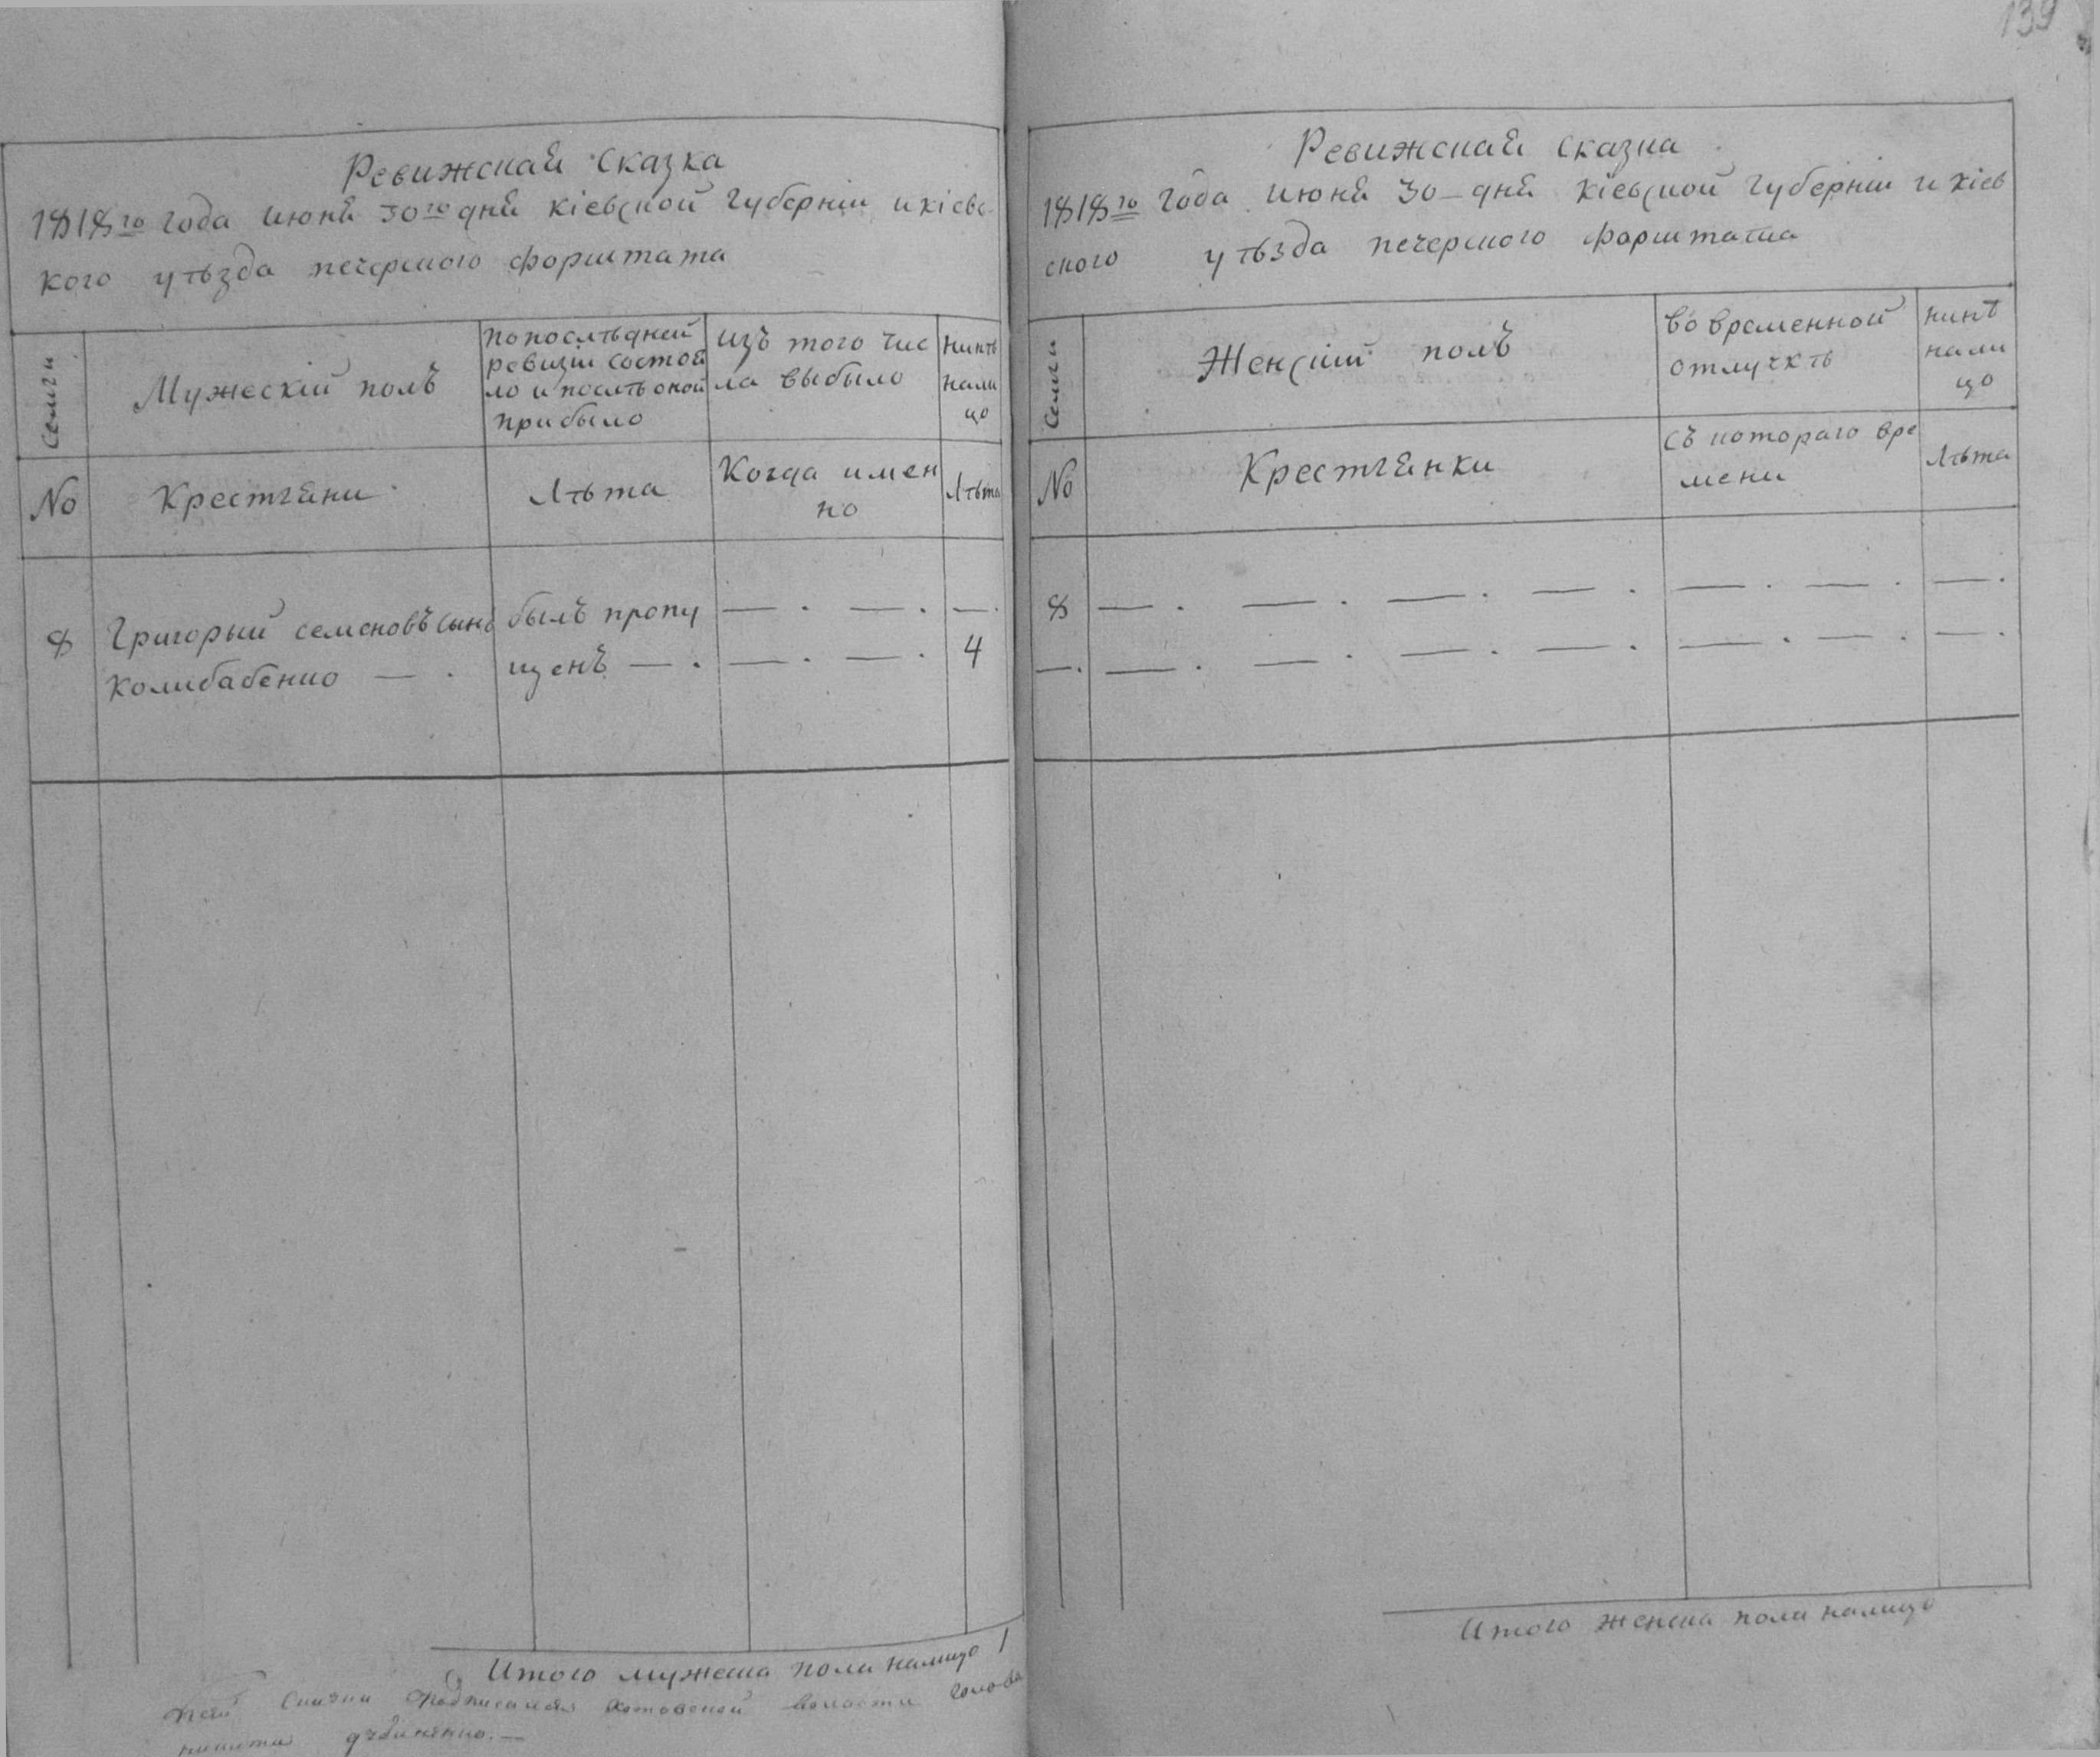 139
Ревижская Сказка
1818го года июня 30го дня кіевской губерніи и кіевс
кого уѣзда печерского форштата
Семьи
Мужескій полъ
по послѣдней
ревизіи состоя
ло и послѣ оной
прибыло
изъ того чис
ла выбыло
нинѣ
нали
цо
№
Крестьяни
Лѣта
Когда имен
но
Лѣта
8
Григорый семеновъ сынъ
Колибабенко — .
былъ пропу
щенъ — .
— . — .
— . — .
— .
4
Итого мужеска поля налицо 1
Сей Сказки подписался хотовской волости голова
дубиненко. —
Ревижская сказка
1818го года июня 30 — дня кіевской губерніи и кіев
ского уѣзда печерского форштата
Семьи
Женскій полъ
во временной
отлучкѣ
нинѣ
нали
цо
№
Крестьянки
съ котораго вре
мени
Лѣта
8 — . — . — . — . — . — . — .
— . — . — . — . — . — . — . — .
Итого женска поля налицо